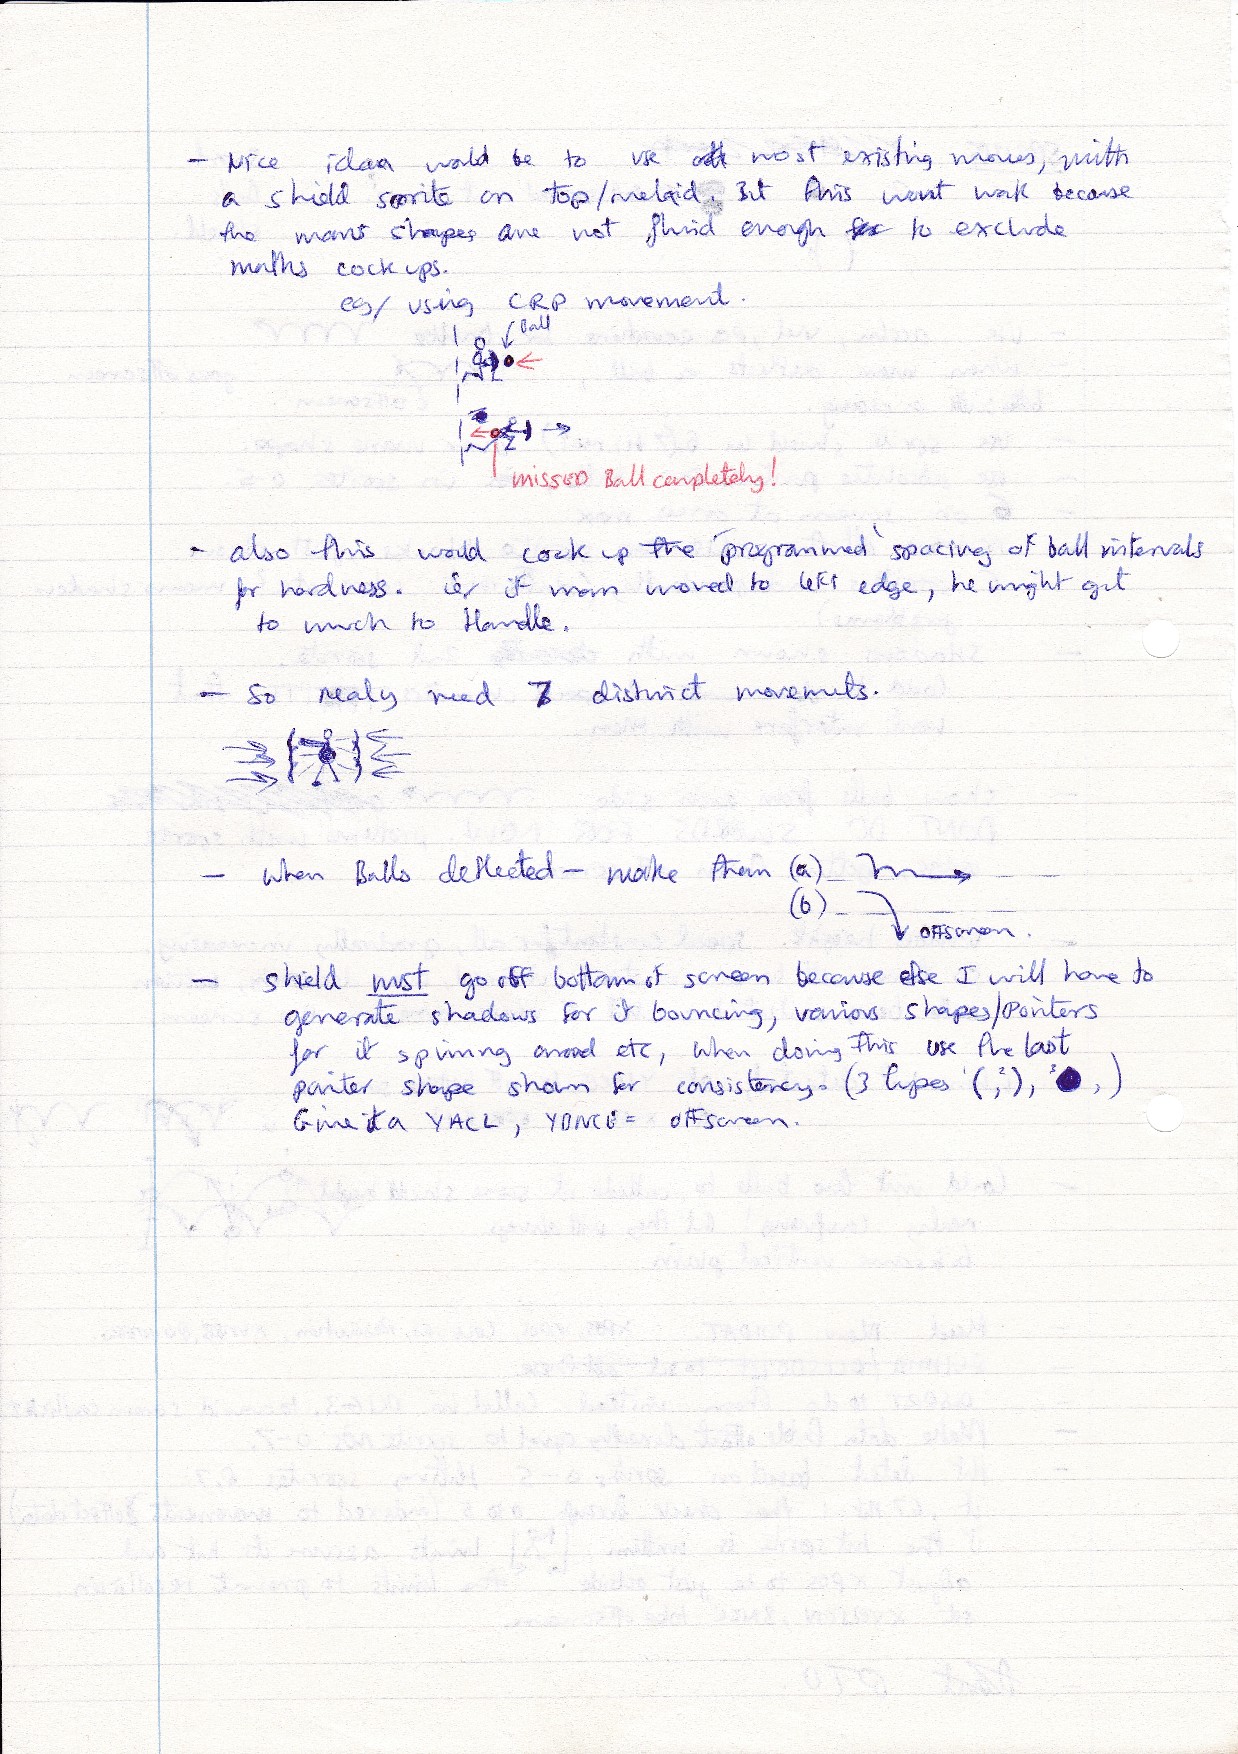 - Nice idea would be to use most existing moves, with
a shield sprite on top/melaid. But this wont work because
the mans shapes are not fluid enough to exclude
maths cock ups.
eg/ using CRP movement.
Ball
MISSED Ball completely!
- also this would cock up the 'programmed' spacing of ball intervals
for hardness. ie/ if man moved to left edge, he might get
to much to Handle.
- So realy need 7 distinct movements.
- when Balls deflected - make them (a)
(b)
offscreen.
- shield must go off bottom of screen because else I will have to
generate shadows for it bouncing, various shapes/pointers
for it spinning around etc, when doing this use the last
pointer shape shown for consistency. (3 types
Give it a YACL, YBNCE = offscreen.